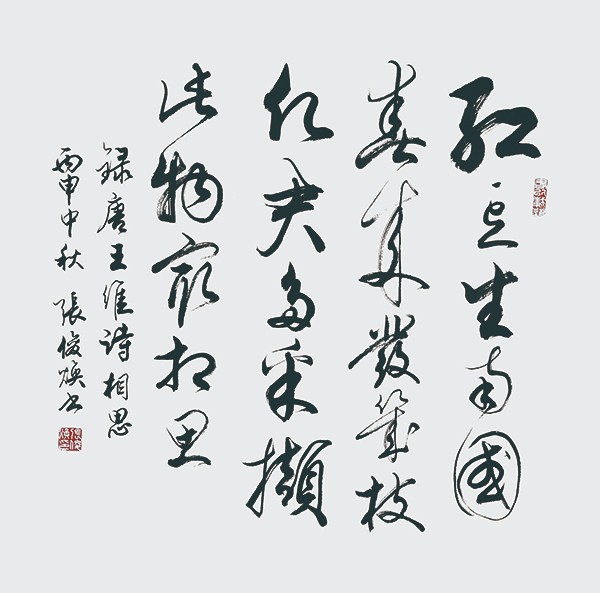 紅豆生南國
春來發幾枝
願君多采擷
此物最相思
録唐王維詩相思
丙申中秋 張俊煥书